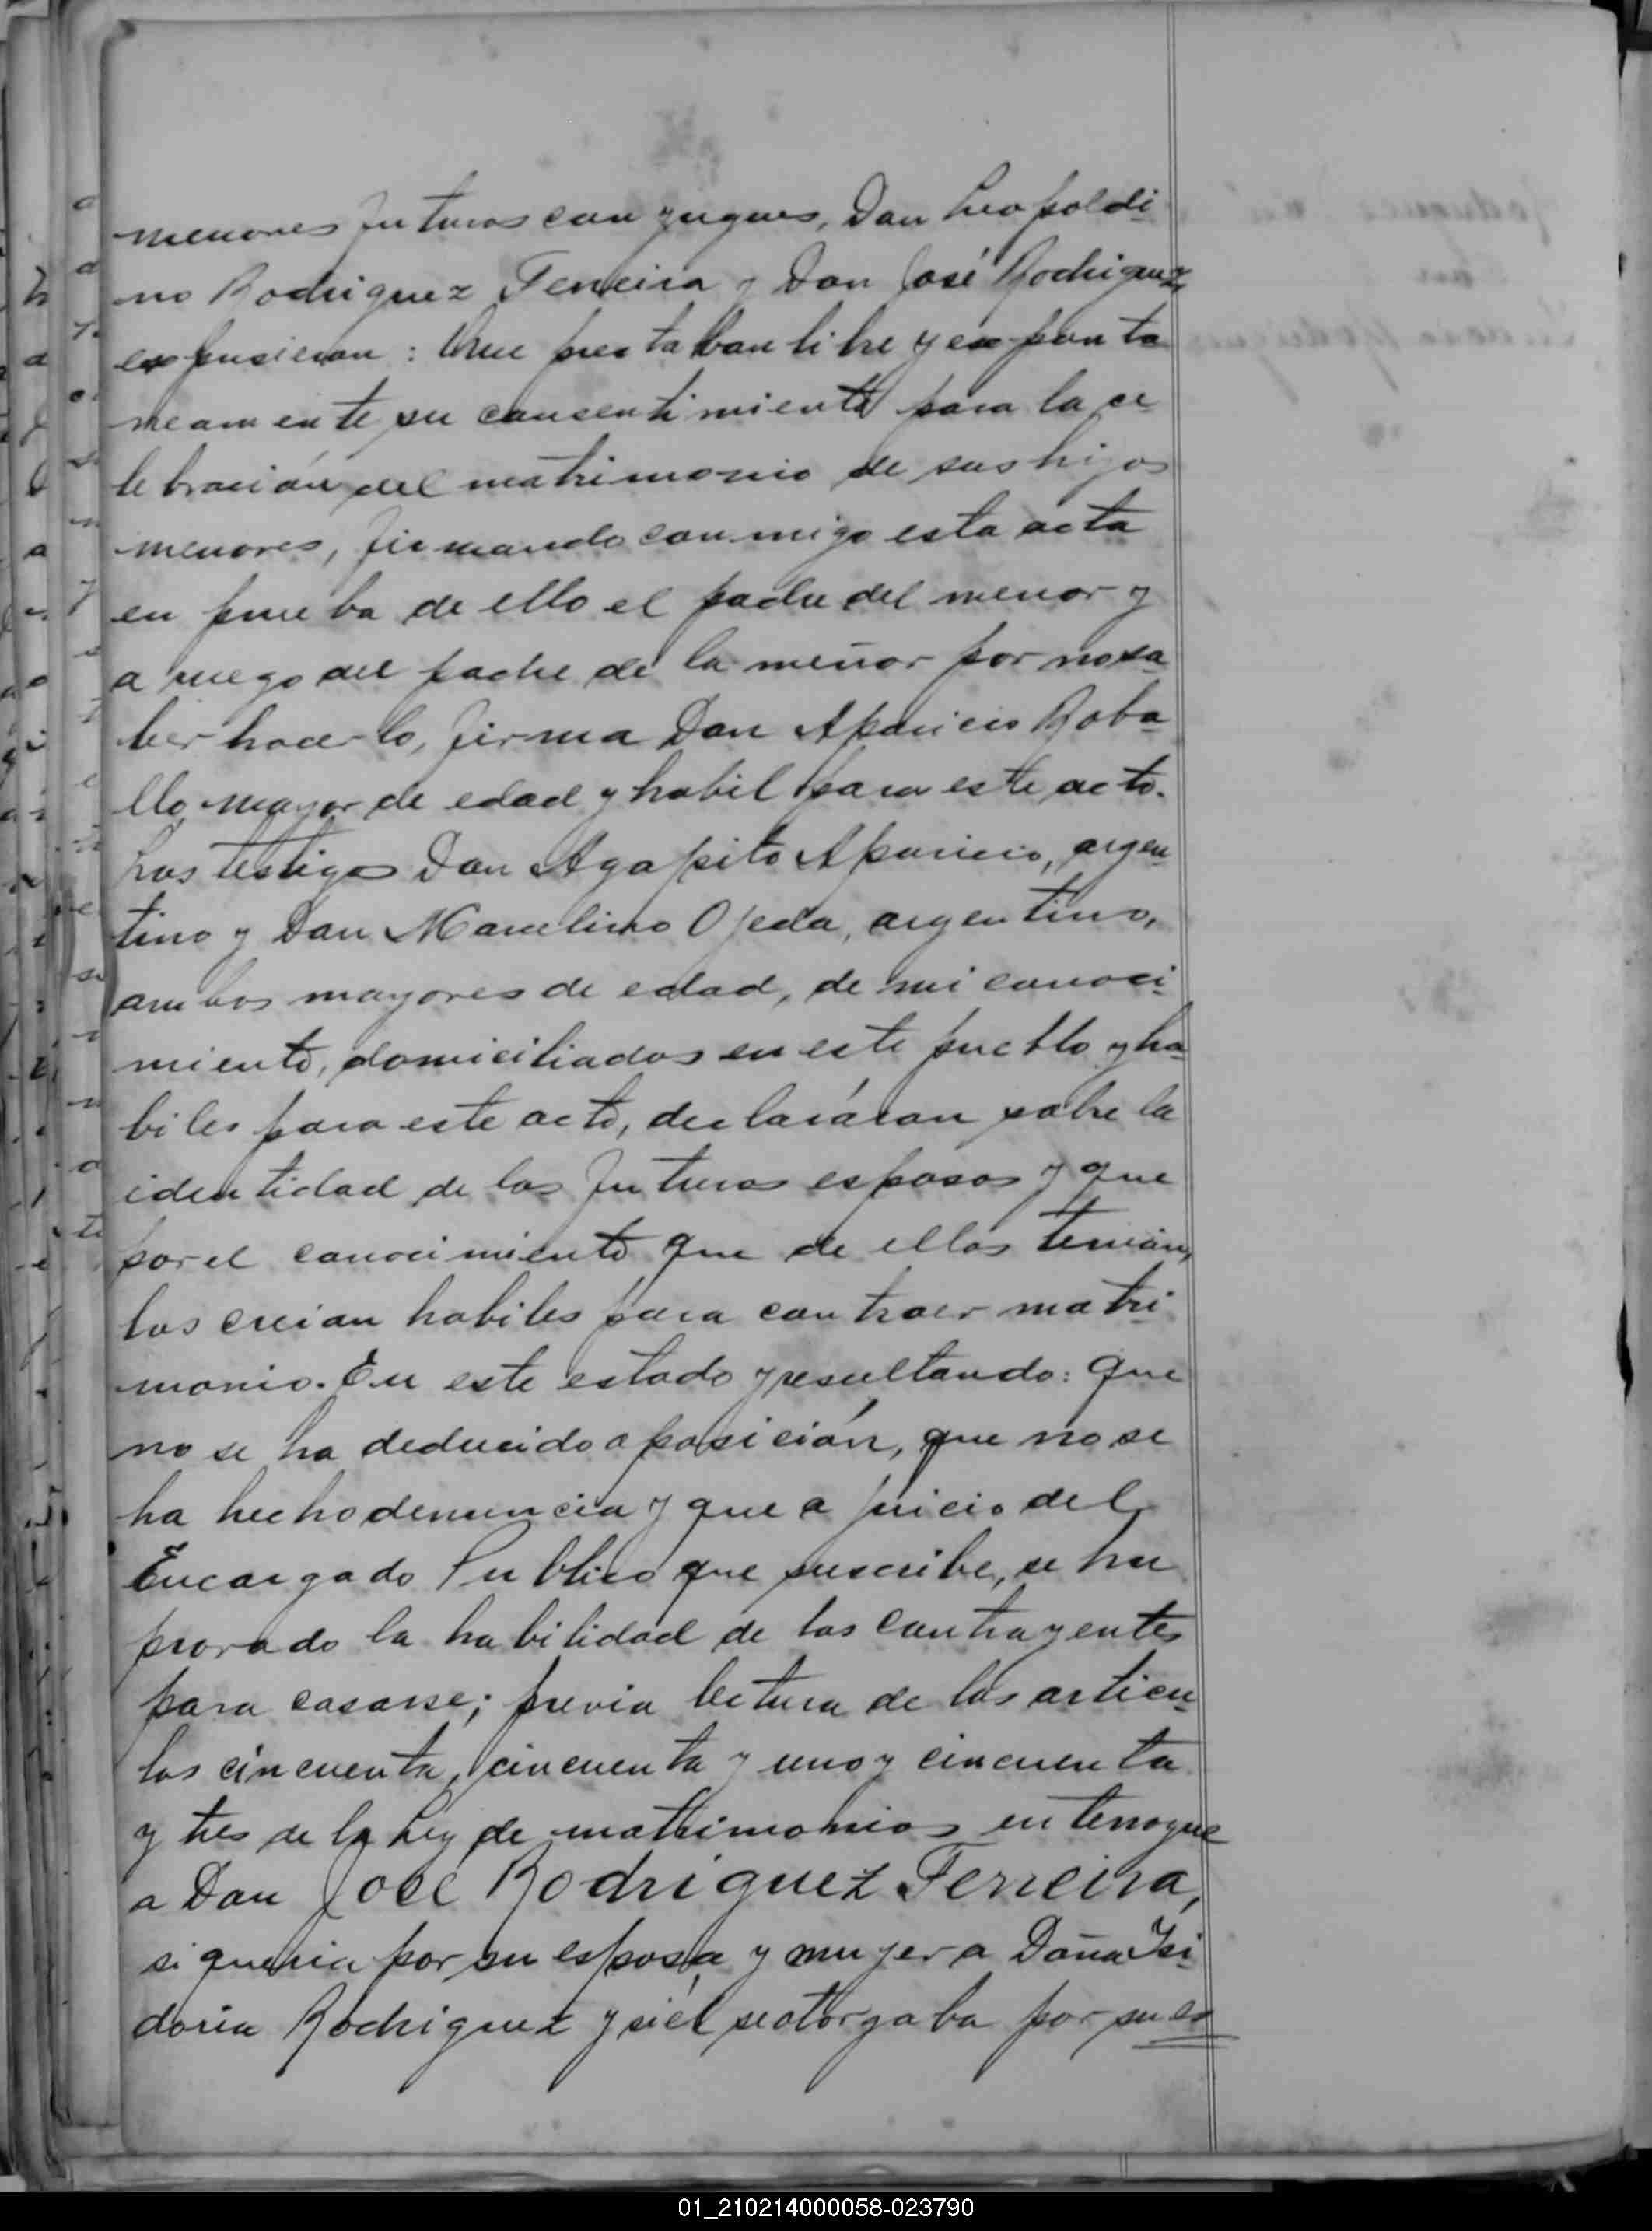 menores futuros conyugues, Don Leopoldi
no Rodriguez Ferreira y Don José Rodriguez
expusieron: Que prestaban libre y espon ta
neamente su consentimiento para la ce
lebración del matrimonio de sus hijos
menores, firmando conmigo esta acta
en prueba de ello el padre del menor y
a ruego del padre de la menor por no sa
ber hacerlo, firma Don Aparicio Roba
llo mayor de edad y habil para este acto.
Los testigos Don Agapito Aparicio, argen
tino y Don Marcelino Ojeda, argentino,
ambos mayores de edad, de mi conoci
miento, domiciliados en este pueblo y ha
biles para este acto, declararon sobre la
identidad de los futuros esposos y que
por el conocimiento que de ellos tenian,
los creian habiles para contraer matri
monio. En este estado y resultando: que
no se ha deducido oposición, que no se
ha hecho denuncia y que a juicio del
Encargado Publico que suscribe, se ha
provado la habilidad de los contrayentes
para casarse; previa letura de los articu
los cincuenta, cincuenta y uno y cincuenta
y tres de la Ley de matrimonios enterrogue
a Don José Rodriguez Ferreira,
si queria por su esposa y mujer a Doña Isi
doria Rodriguez y si el se otorgaba por su es
01_210214000058-023790